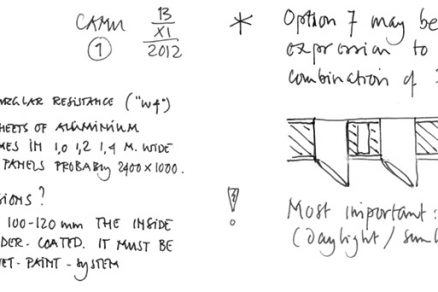 CAMU
13
XI
2012
1
RGLAR RESISTANCE ("W4")
HEETS OF ALUMINIUM
MES IN 1,0 1,2 1,4 M. WIDE
PANELS PROBABLY 2400 x 1000.
SIONS?
100-120 mm THE INSIDE
DER-COATED. IT MUST BE
ET-PAINT-SYSTEM
* Option 7 may be
expression to
combination of
!
Most important:
(daylight / sunl